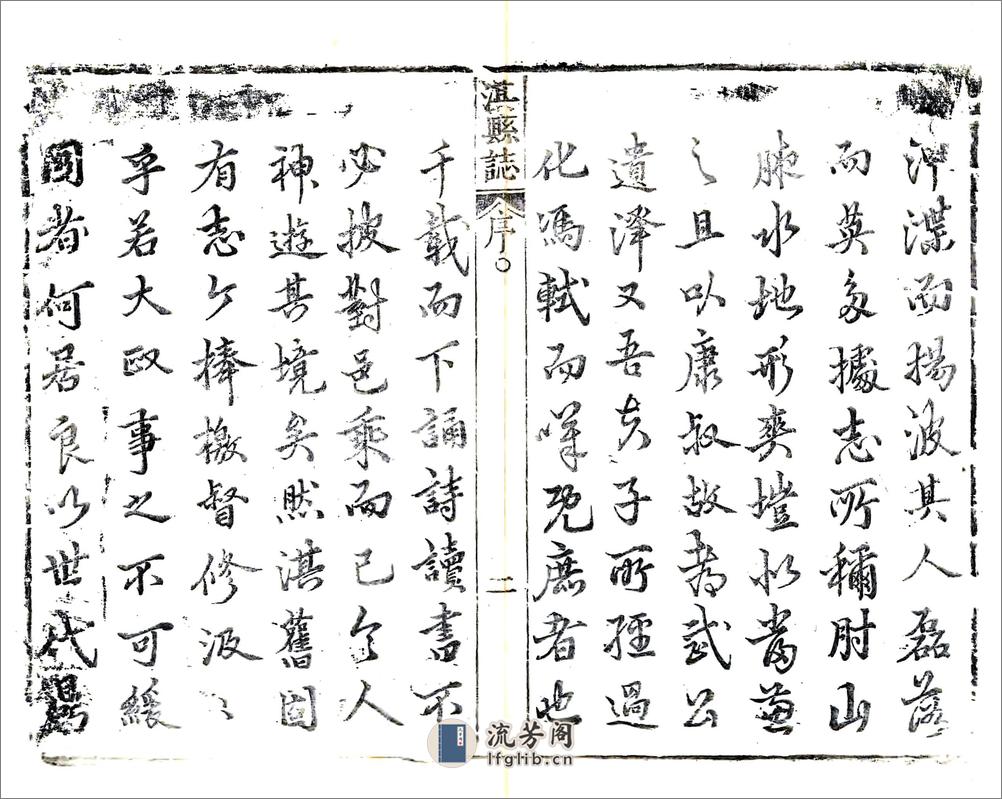 渫而揚波其人磊落
而英多據志所稱肘山
腋水地形爽塏
之且以康叔故都武公
遺澤又吾夫子所經過
化馮軾而嘆既庶者也
淇縣誌 序 二
千載而下誦詩讀書不
必披對邑乘而已令人
神遊其境矣然淇舊固
有志今捧檄督修汲〻
乎若大政事之不可緩
圖者何居良以世代
流芳阁
lfglib.cn